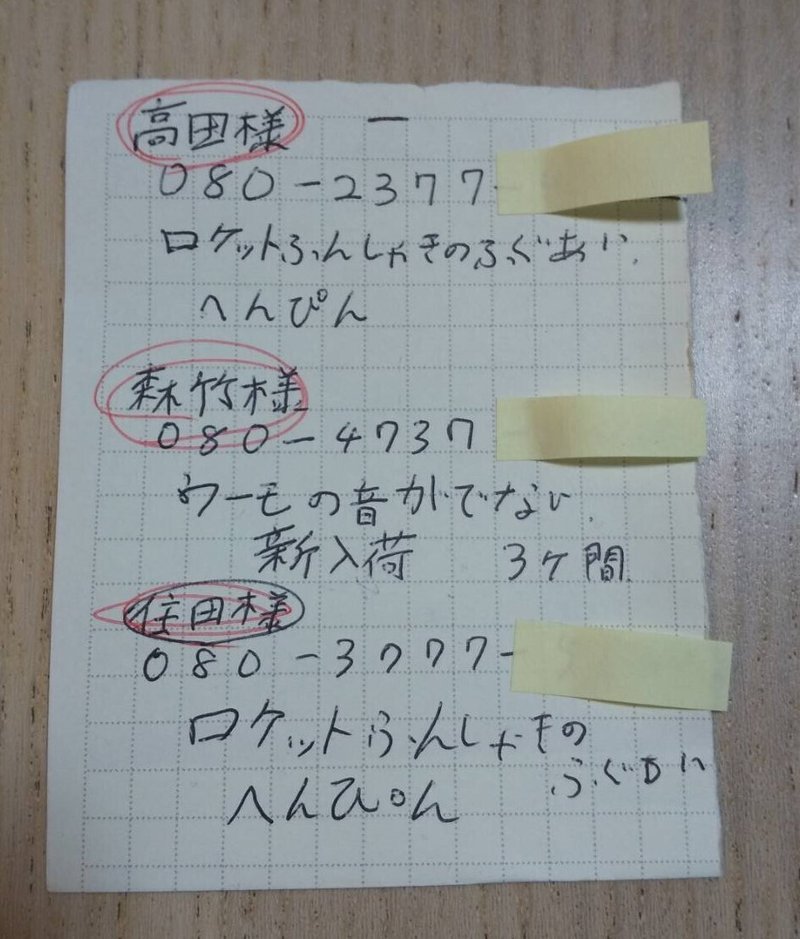 高田様
080-2377-
ロケットふんしゃきのふぐあい.
へんぴん
森竹様
080-4737
ウーモの音がでない.
新入荷 3ケ間
住田様
080-3777-
ロケットふんしゃきの
ふぐあい
へんぴん